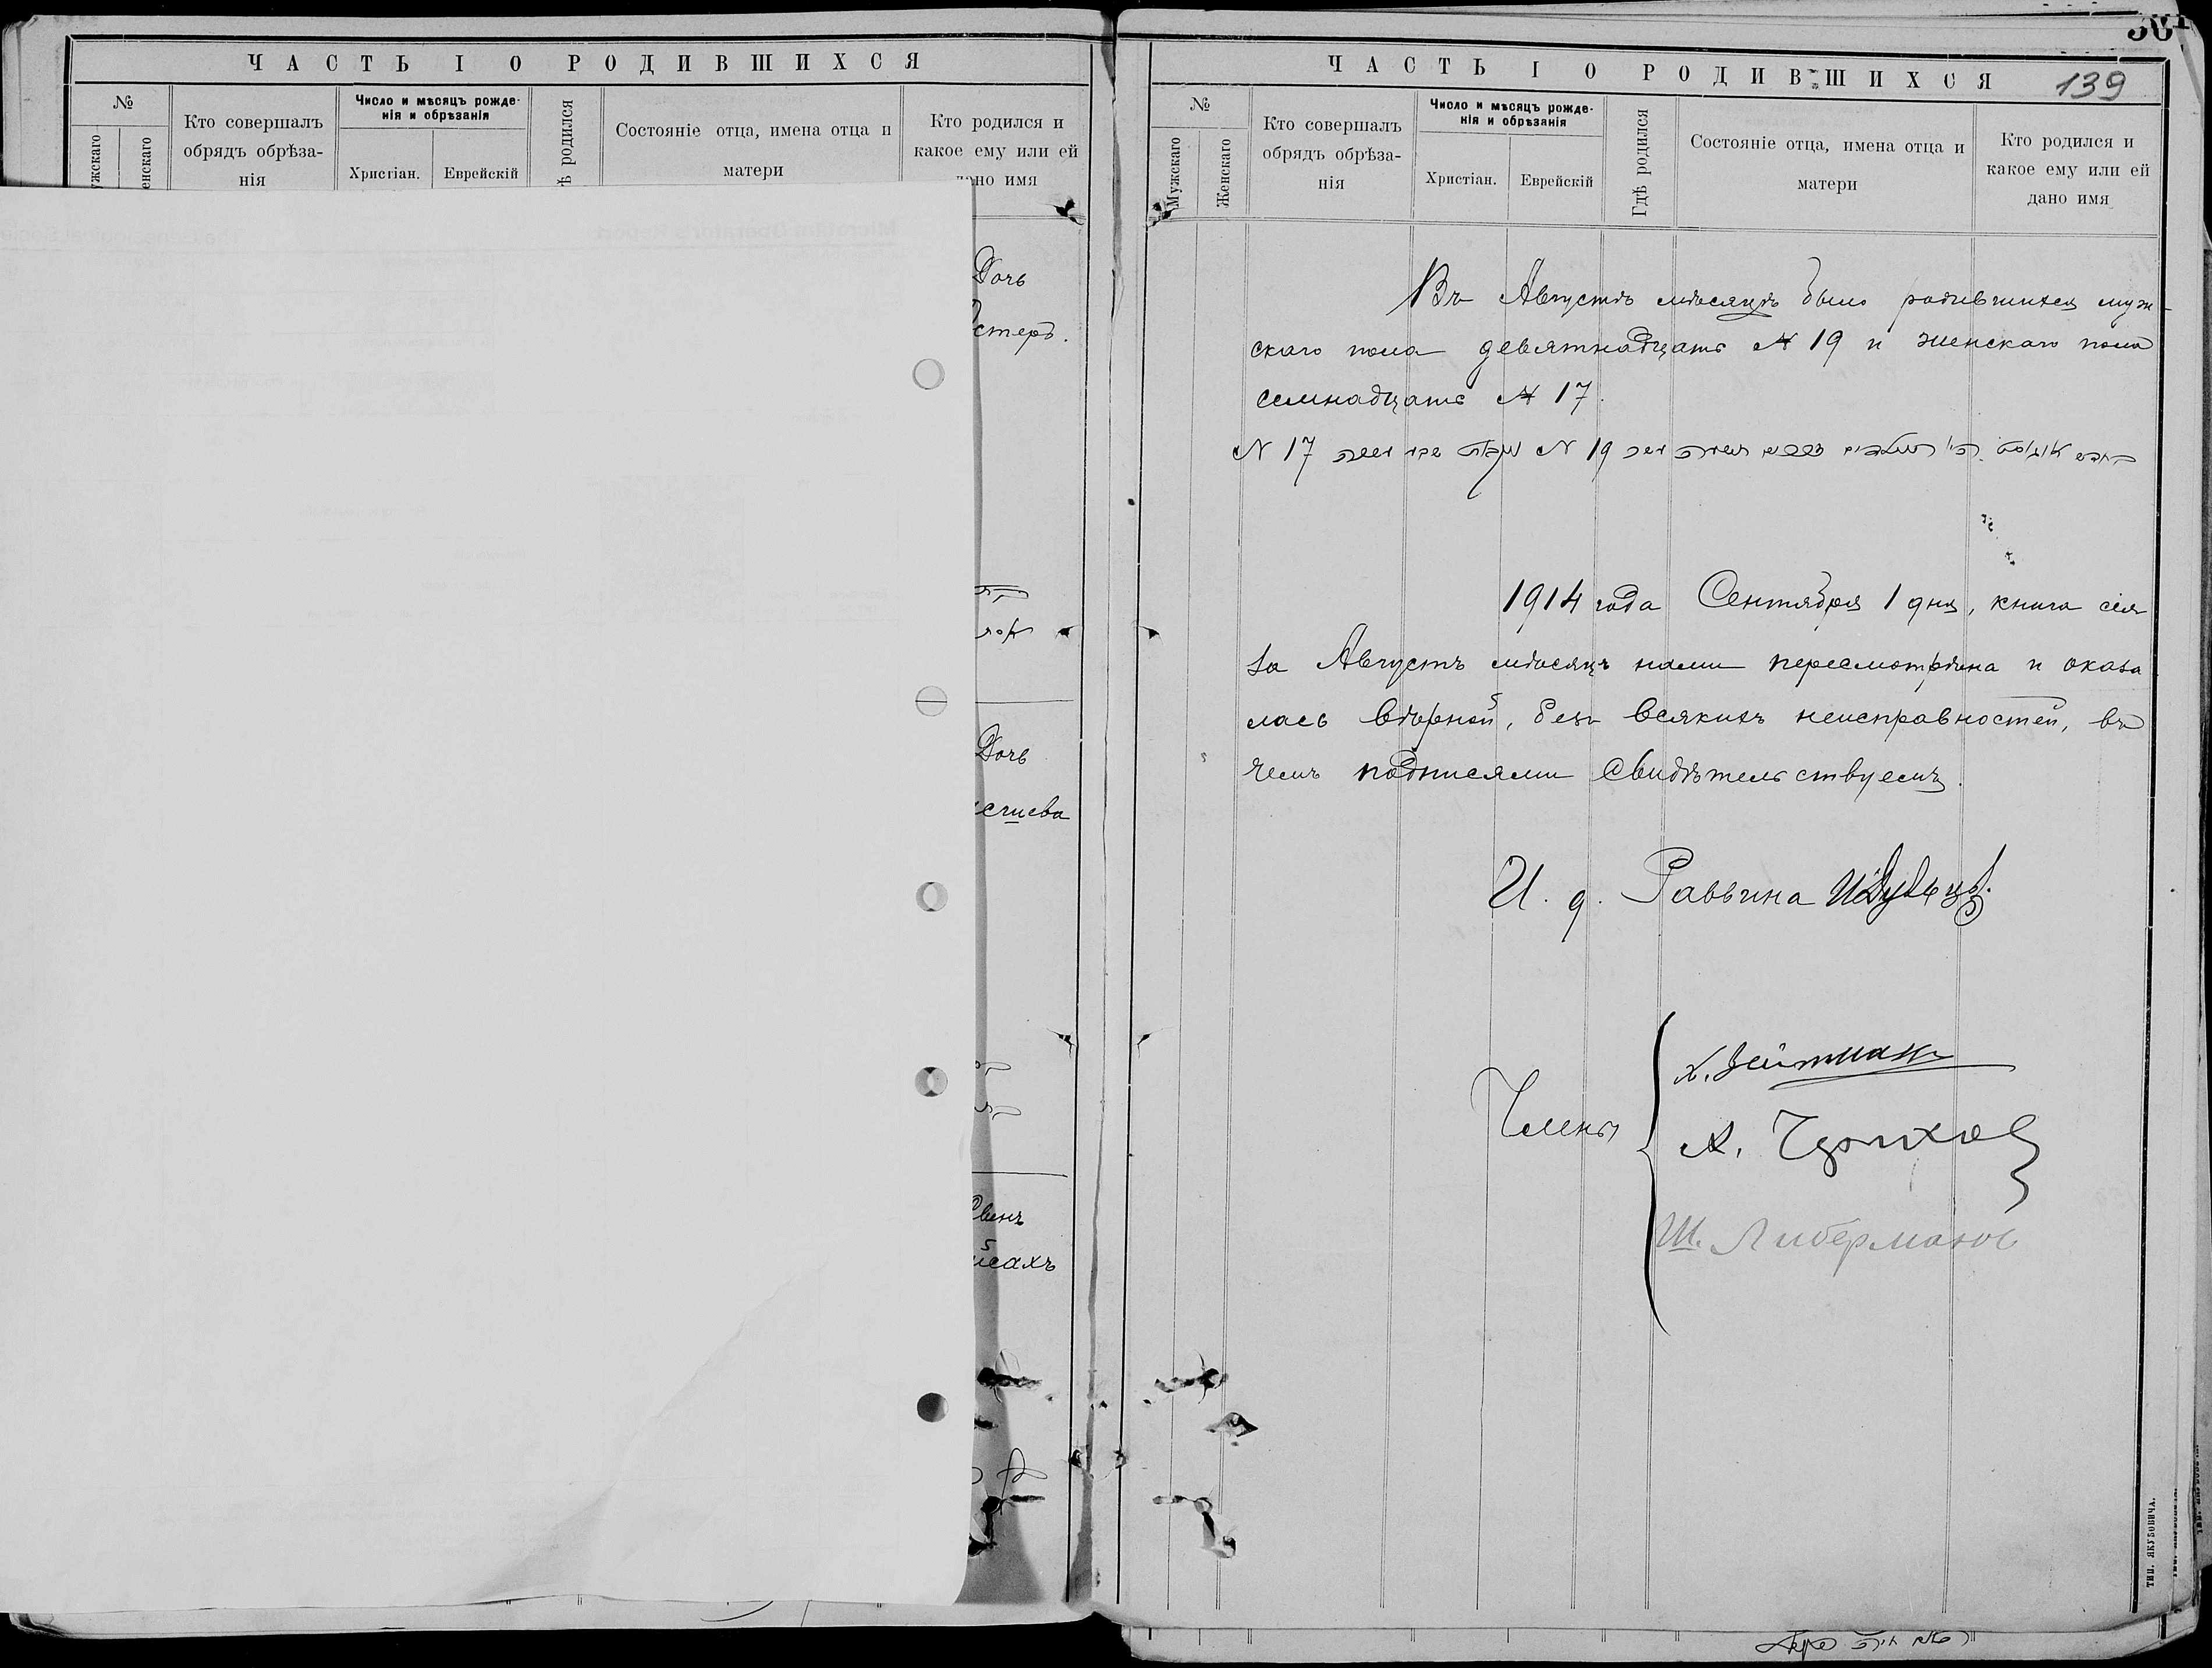 ЧАСТЬ I О РОДИВШИХСЯ
№
ужскаго
енскаго
Кто совершалъ
обрядъ обрѣза-
нія
Число и мѣсяцъ рожде-
нія и обрѣзанія
Христіан.
Еврейскій
ѣ родился
Состояніе отца, имена отца и
матери
Кто родился и
какое ему или ей
дано имя
Дочь
стеръ.
Дочь
ЧАСТЬ I О РОДИВШИХСЯ
139
№
Мужскаго
Женскаго
Кто совершалъ
обрядъ обрѣза-
нія
Число и мѣсяцъ рожде-
нія и обрѣзанія
Христіан.
Еврейскій
Гдѣ родился
Состояніе отца, имена отца и
матери
Кто родился и
какое ему или ей
дано имя
Въ Августѣ мѣсяцѣ было родившихся муж-
скаго пола девятнадцать № 19 и женскаго пола
семнадцать № 17.
חדש אויגוסט № 19 № 17
1914 года Сентября 1 дня, книга сія
за Августъ мѣсяцъ нами пересмотрѣна и оказа
лась вѣрной, безъ всякихъ неисправностей, въ
чемъ подписями свидѣтельствуемъ.
И. д. Раввина
Члены
Х. Зейтманъ
А.
Ш. Либерманъ
ТИП. ЯКУБОВИЧА.